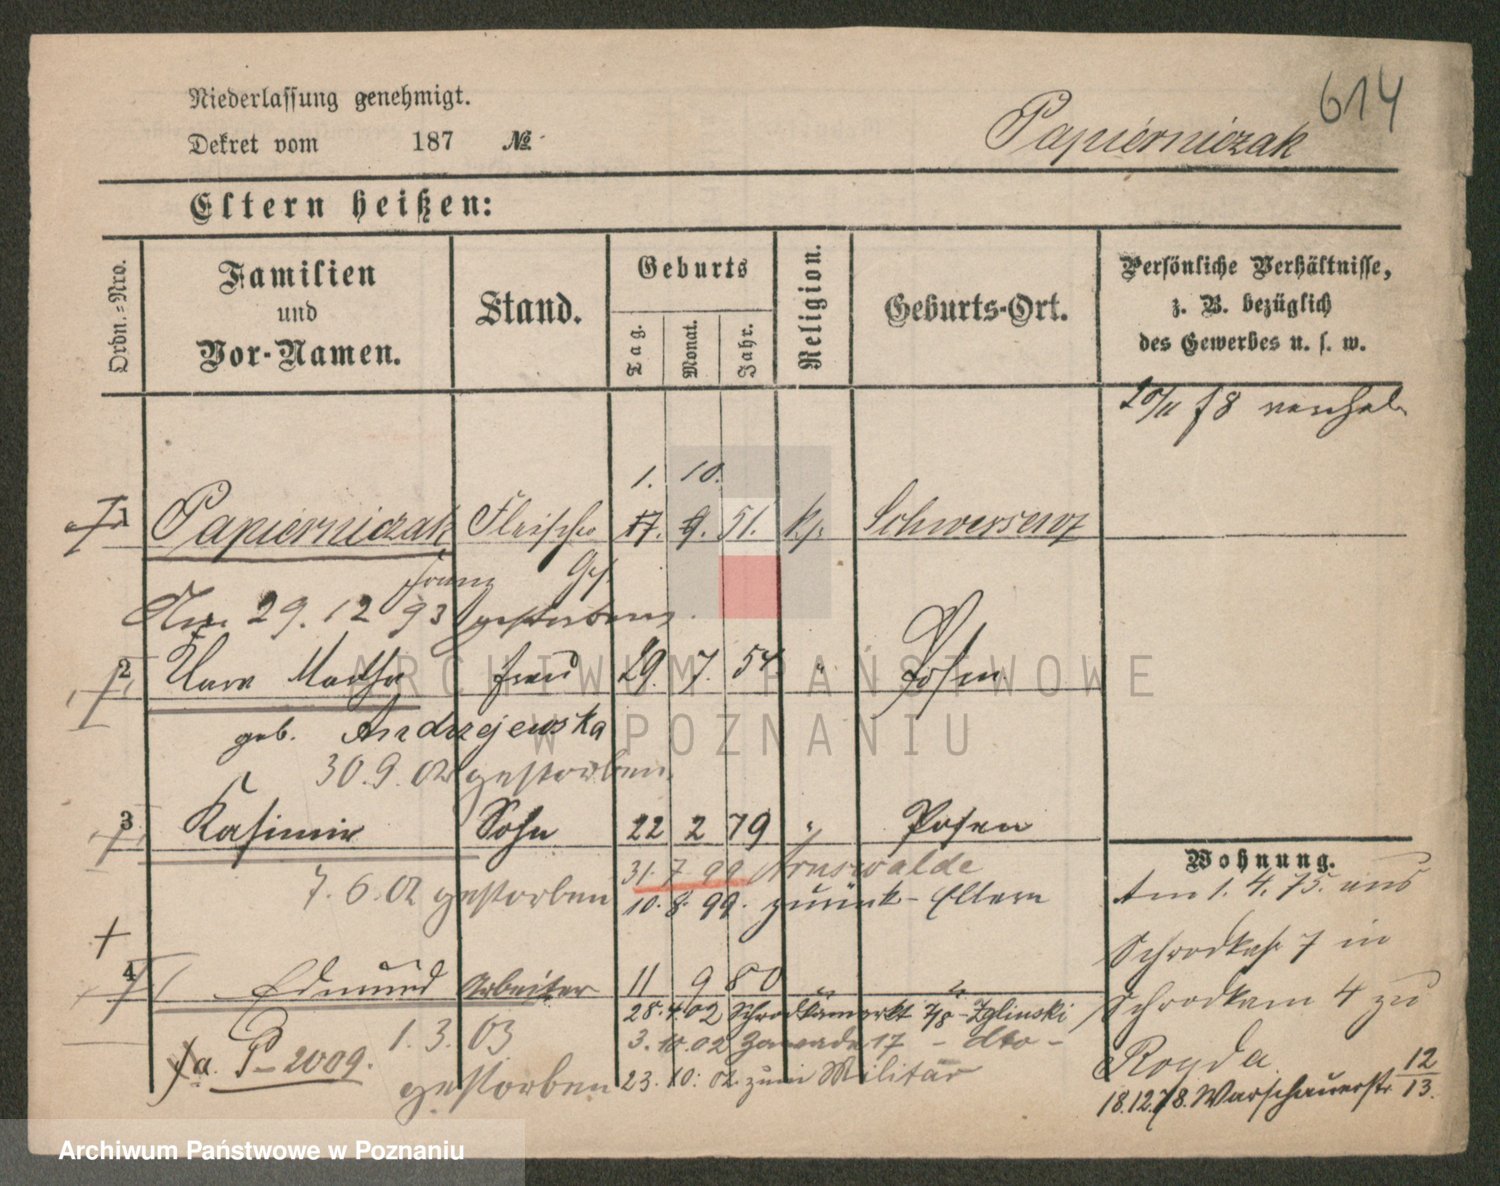 614
Niederlassung genehmigt.
Dekret vom 187 № Papierniczak
Eltern heißen:
Ordn.-Nro.
Familien
und
Vor-Namen.
Stand.
Geburts
Tag.
Monat.
Jahr.
Religion.
Geburts-Ort.
Persönliche Verhältnisse,
z. B. bezüglich
des Gewerbes u. s. w.
78
1. 10.
1 Papierniczak Fleischer 17. 9. 51. k. Schwersenz
Franz Ges.
29. 12 93 gestorben.
2 Frau 29. 7. 54. " Posen
geb. Andrzejewska
30. 9. 02 gestorben.
3 Kasimir Sohn 22 2 79 " Posen
31. 7 99 Arnswalde
7. 6. 02 gestorben 10. 8. 99. zurück - Eltern
4 Edmund Arbeiter 11 9 80 " "
28. 4. 02 Schrodkamarkt 7/8 - Zglinski
1. 3. 03 3. 10. 02 Zawade 17 - dto -
gestorben 23. 10. 02. zum Militär
fa. P - 2009.
Wohnung.
Am 1. 4. 75. aus
7 in
4 zu
18.12.78. Warschauerstr. 12/13.
ARCHIWUM PAŃSTWOWE
W POZNANIU
Archiwum Państwowe w Poznaniu